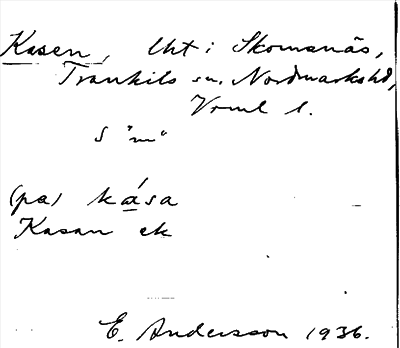 Kasen, Uht i Skomsnäs,
Trankils sn, Nordmarkshd,
Vrml l.
S "m"
(pa) kása
Kasan ek
E. Andersson 1936.